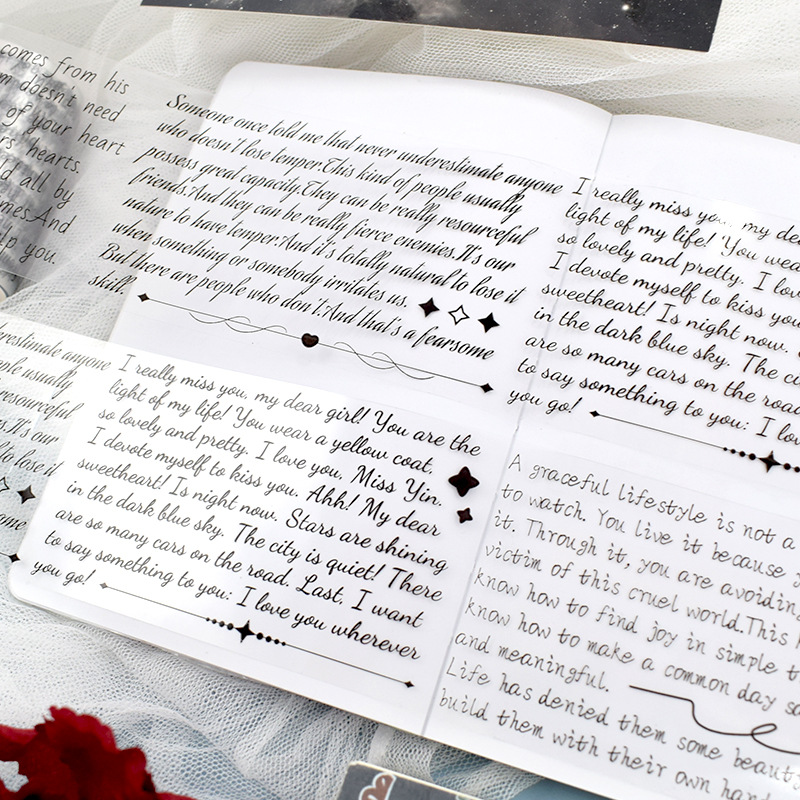 comes from his
doesn't need
of your heart
hearts.
all by
And
you.
Someone once told me that never underestimate anyone
who doesn't lose temper.This kind of people usually
possess great capacity.They can be really resourceful
friends.And they can be really fierce enemies.It's our
nature to have temper.And it's totally natural to lose it
when something or somebody irritates us.
But there are people who don't.And that's a fearsome
skill.
I really miss you, my dear
light of my life! You wear
so lovely and pretty. I love
I devote myself to kiss you
sweetheart! Is night now.
in the dark blue sky. The
are so many cars on the road
to say something to you: I
you go!
underestimate anyone
people usually
resourceful
It's our
to lose it
I really miss you, my dear girl! You are the
light of my life! You wear a yellow coat,
so lovely and pretty. I love you, Miss Yin.
I devote myself to kiss you. Ahh! My dear
sweetheart! Is night now. Stars are shining
in the dark blue sky. The city is quiet! There
are so many cars on the road. Last, I want
to say something to you: I love you wherever
you go!
A graceful lifestyle is not a
to watch. You live it because
it. Through it, you are avoiding
victim of this cruel world.This
know how to find joy in simple
know how to make a common day
and meaningful.
Life has denied them some
build them with their own